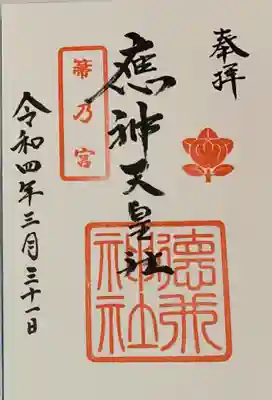 奉拝
應神天皇社
箒乃宮
德兼神社
令和四年三月三十一日